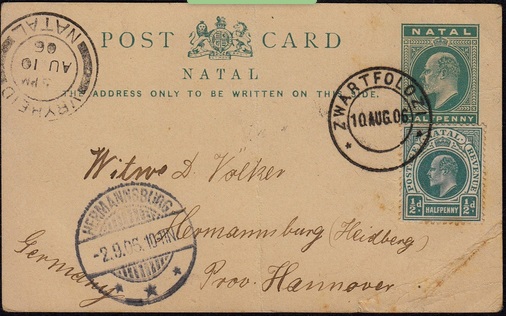 POST CARD
NATAL
THE ADDRESS ONLY TO BE WRITTEN ON THIS SIDE.
NATAL
HALFPENNY
NATAL
POSTAGE REVENUE
½d HALFPENNY ½d
VRYHEID
NATAL
PM
AU 10
06
ZWARTFOLOZI
10 AUG.06
HERMANNSBURG
-2.9.06.10-11N
Witwe D. Völker
Hermannsburg (Heidberg)
Germany
Prov. Hannover